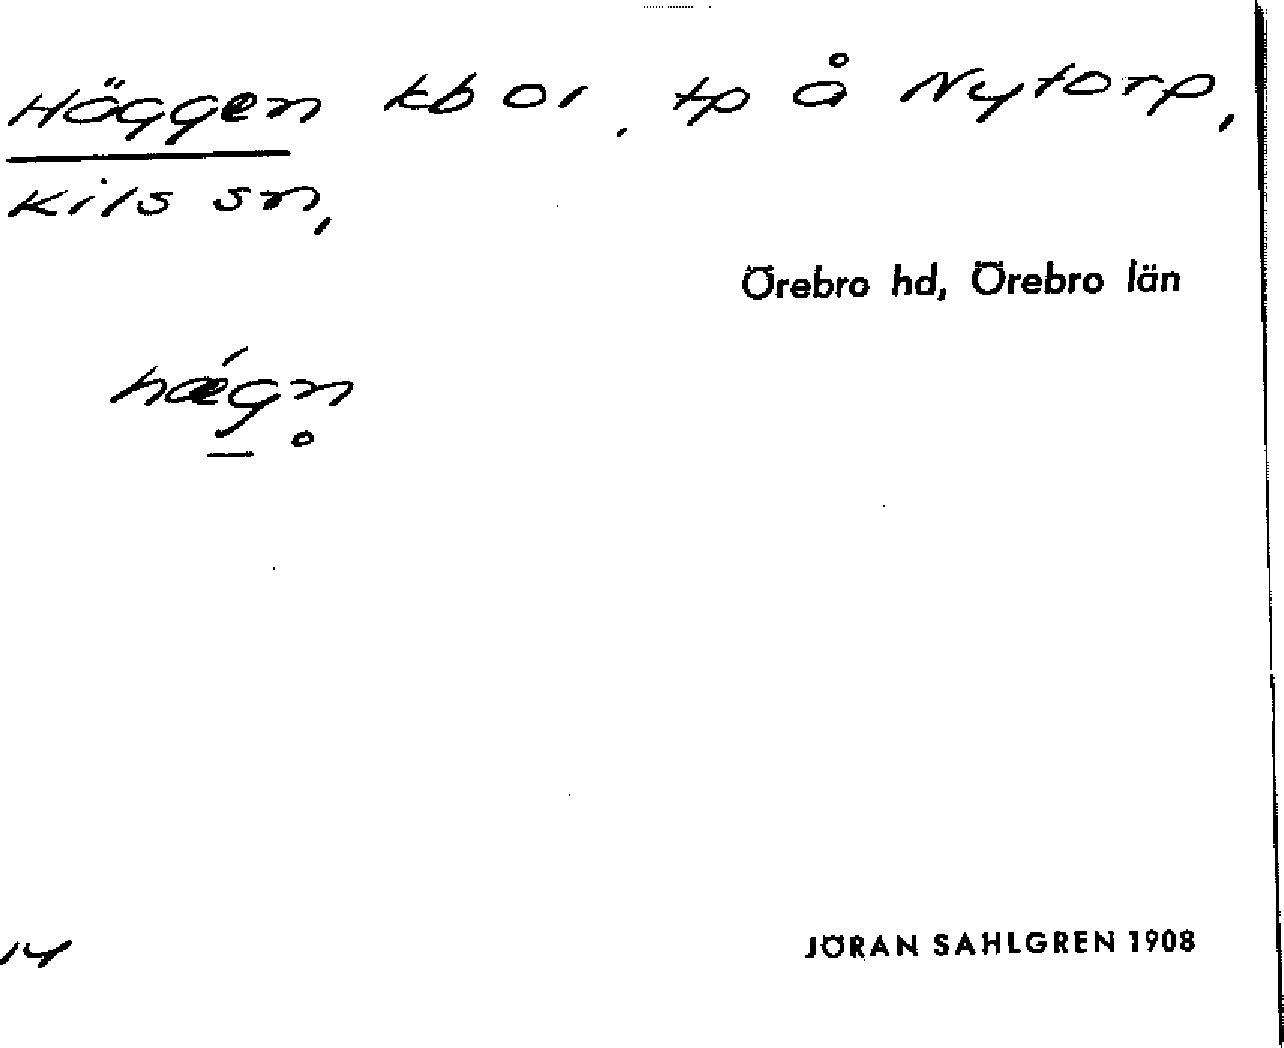 Häggen kbor, tp å Nytorp,
Kils sn,
Örebro hd, Örebro län
hægn
14
JÖRAN SAHLGREN 1908